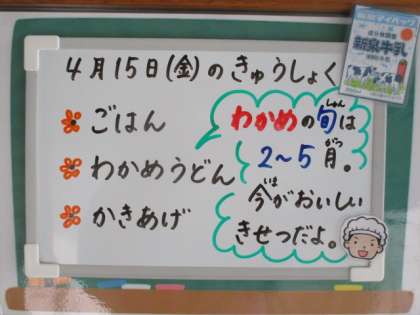 4月15日(金)のきゅうしょく
ごはん
わかめうどん
かきあげ
わかめの旬は
しゅん
2～5月。
がつ
今がおいしい
いま
きせつだよ。
新泉牛乳